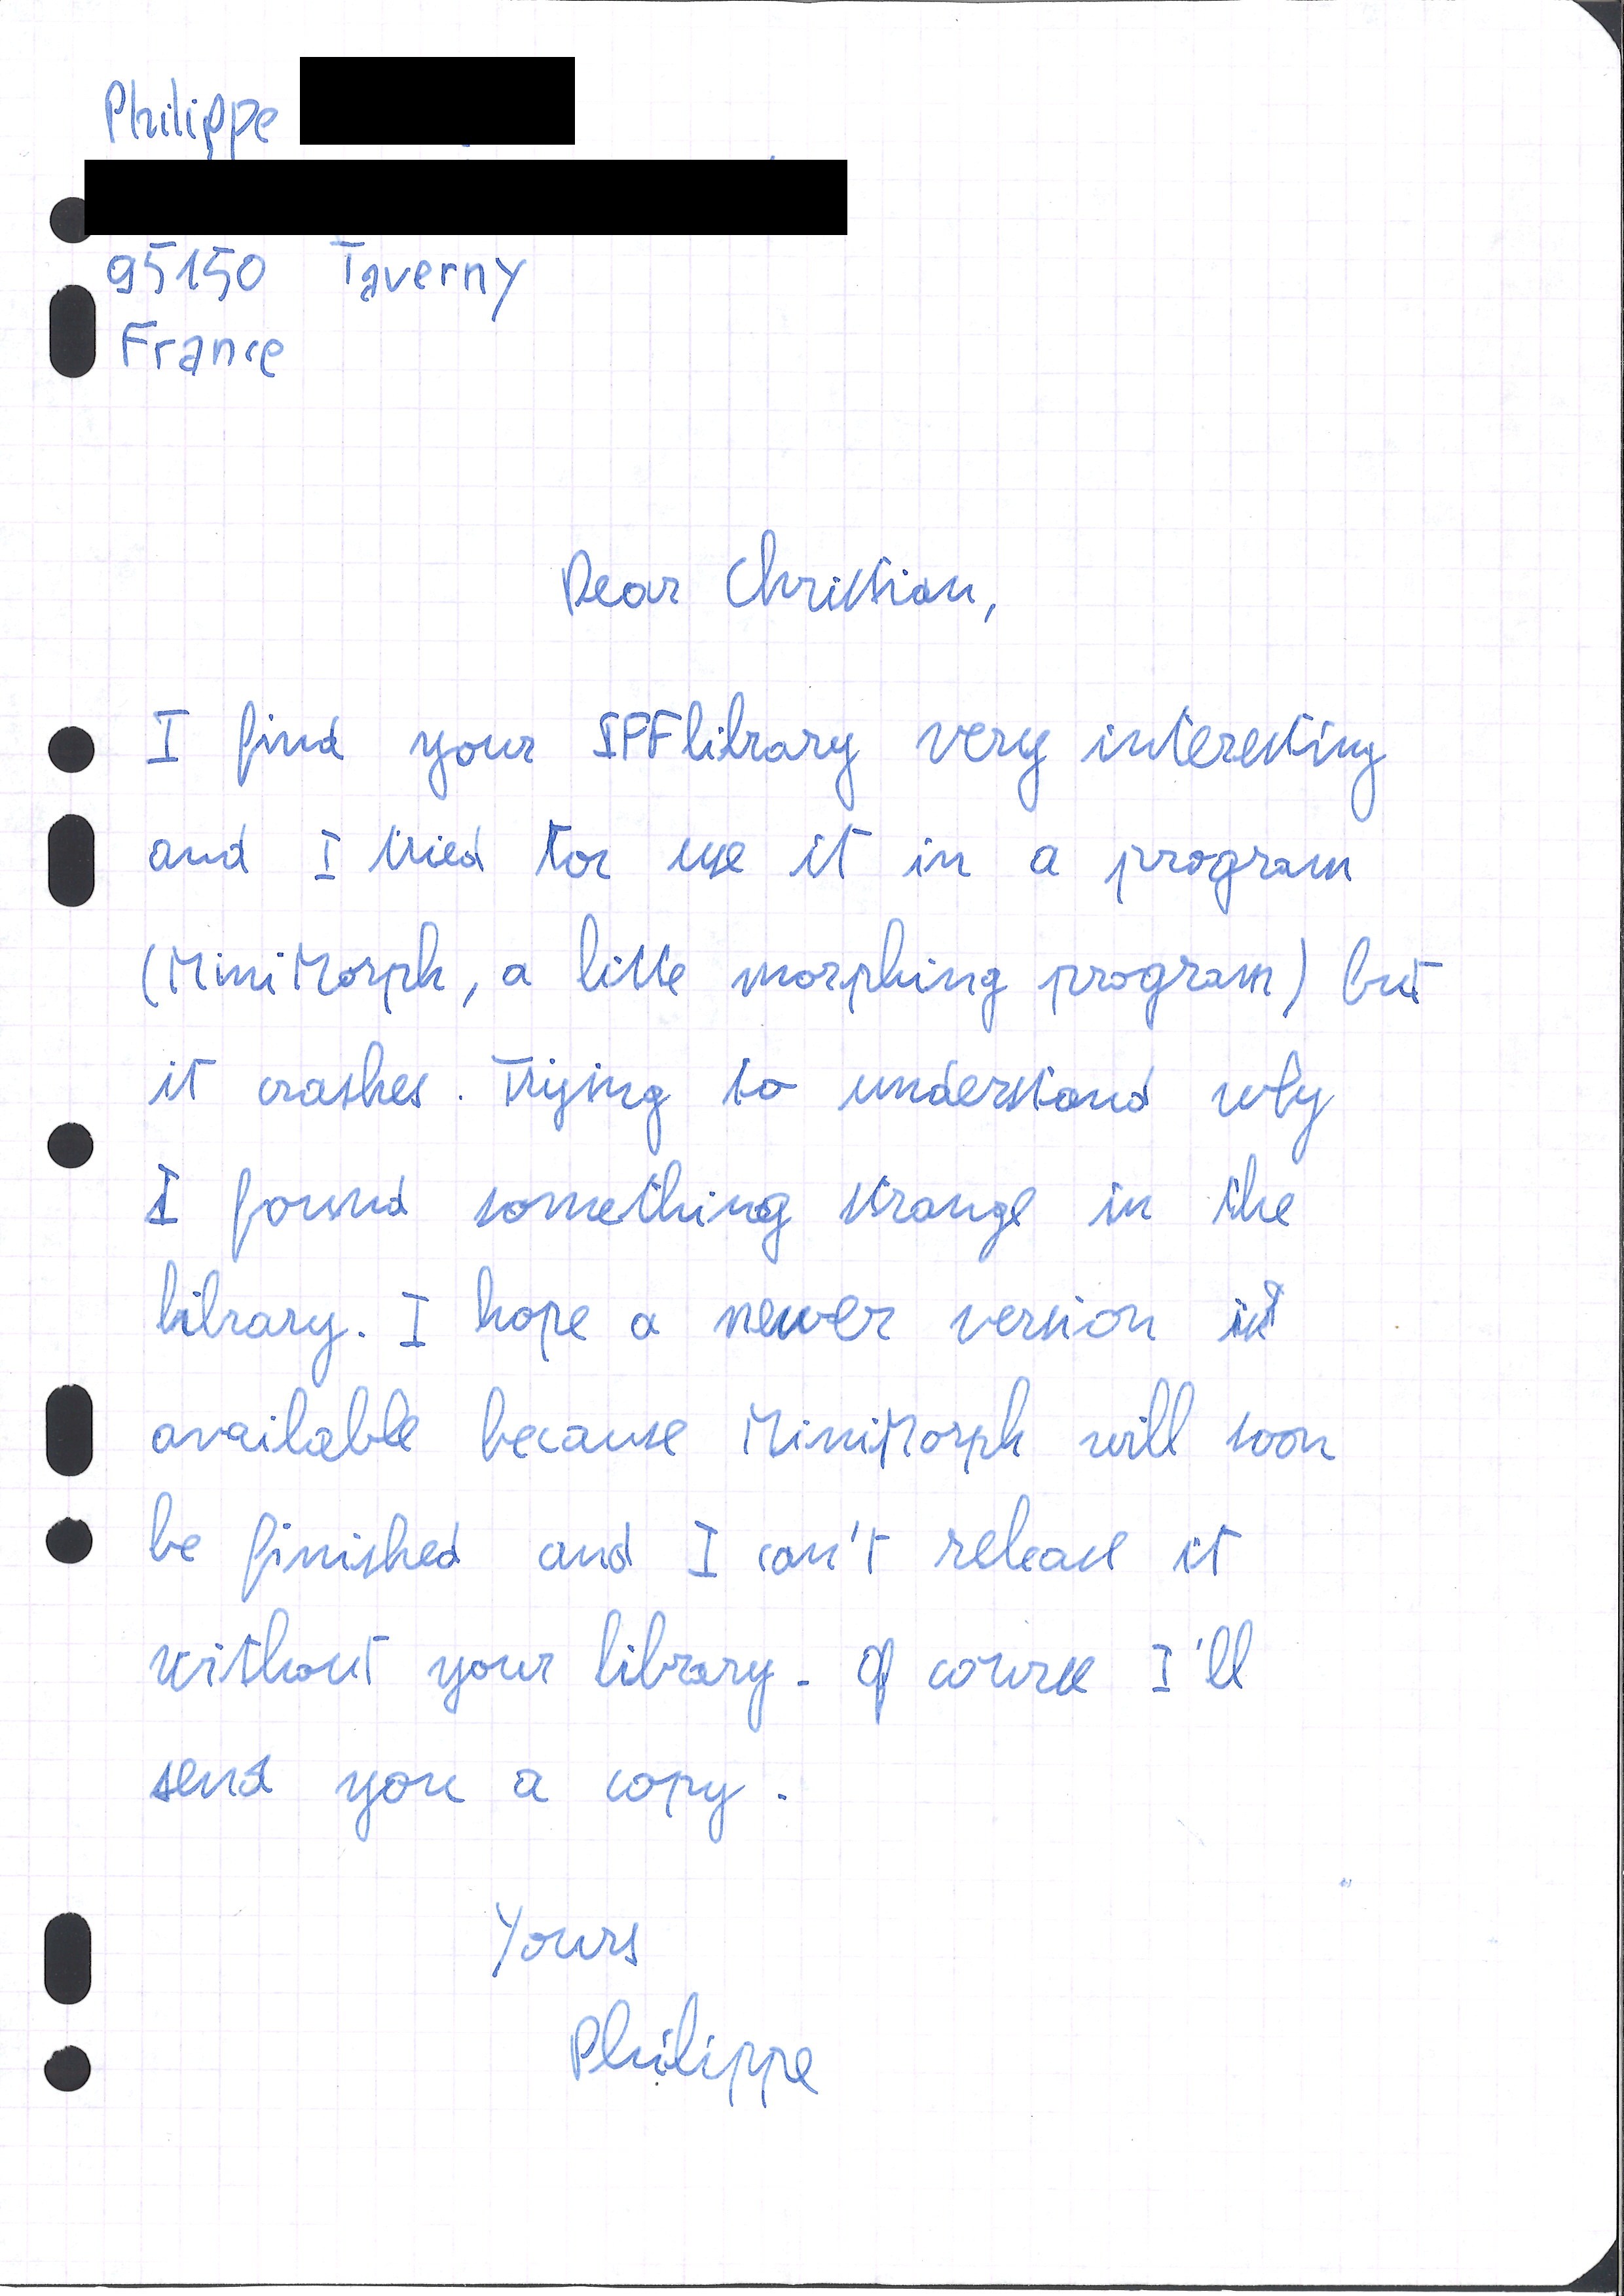 Philippe
95150 Taverny
France
Dear Christian,
I find your IFFlibrary very interesting
and I tried to use it in a program
(MiniMorph, a little morphing program) but
it crashes. Trying to understand why
I found something strange in the
library. I hope a newer version is
available because MiniMorph will soon
be finished and I can't release it
without your library. Of course I'll
send you a copy.
Yours
Philippe